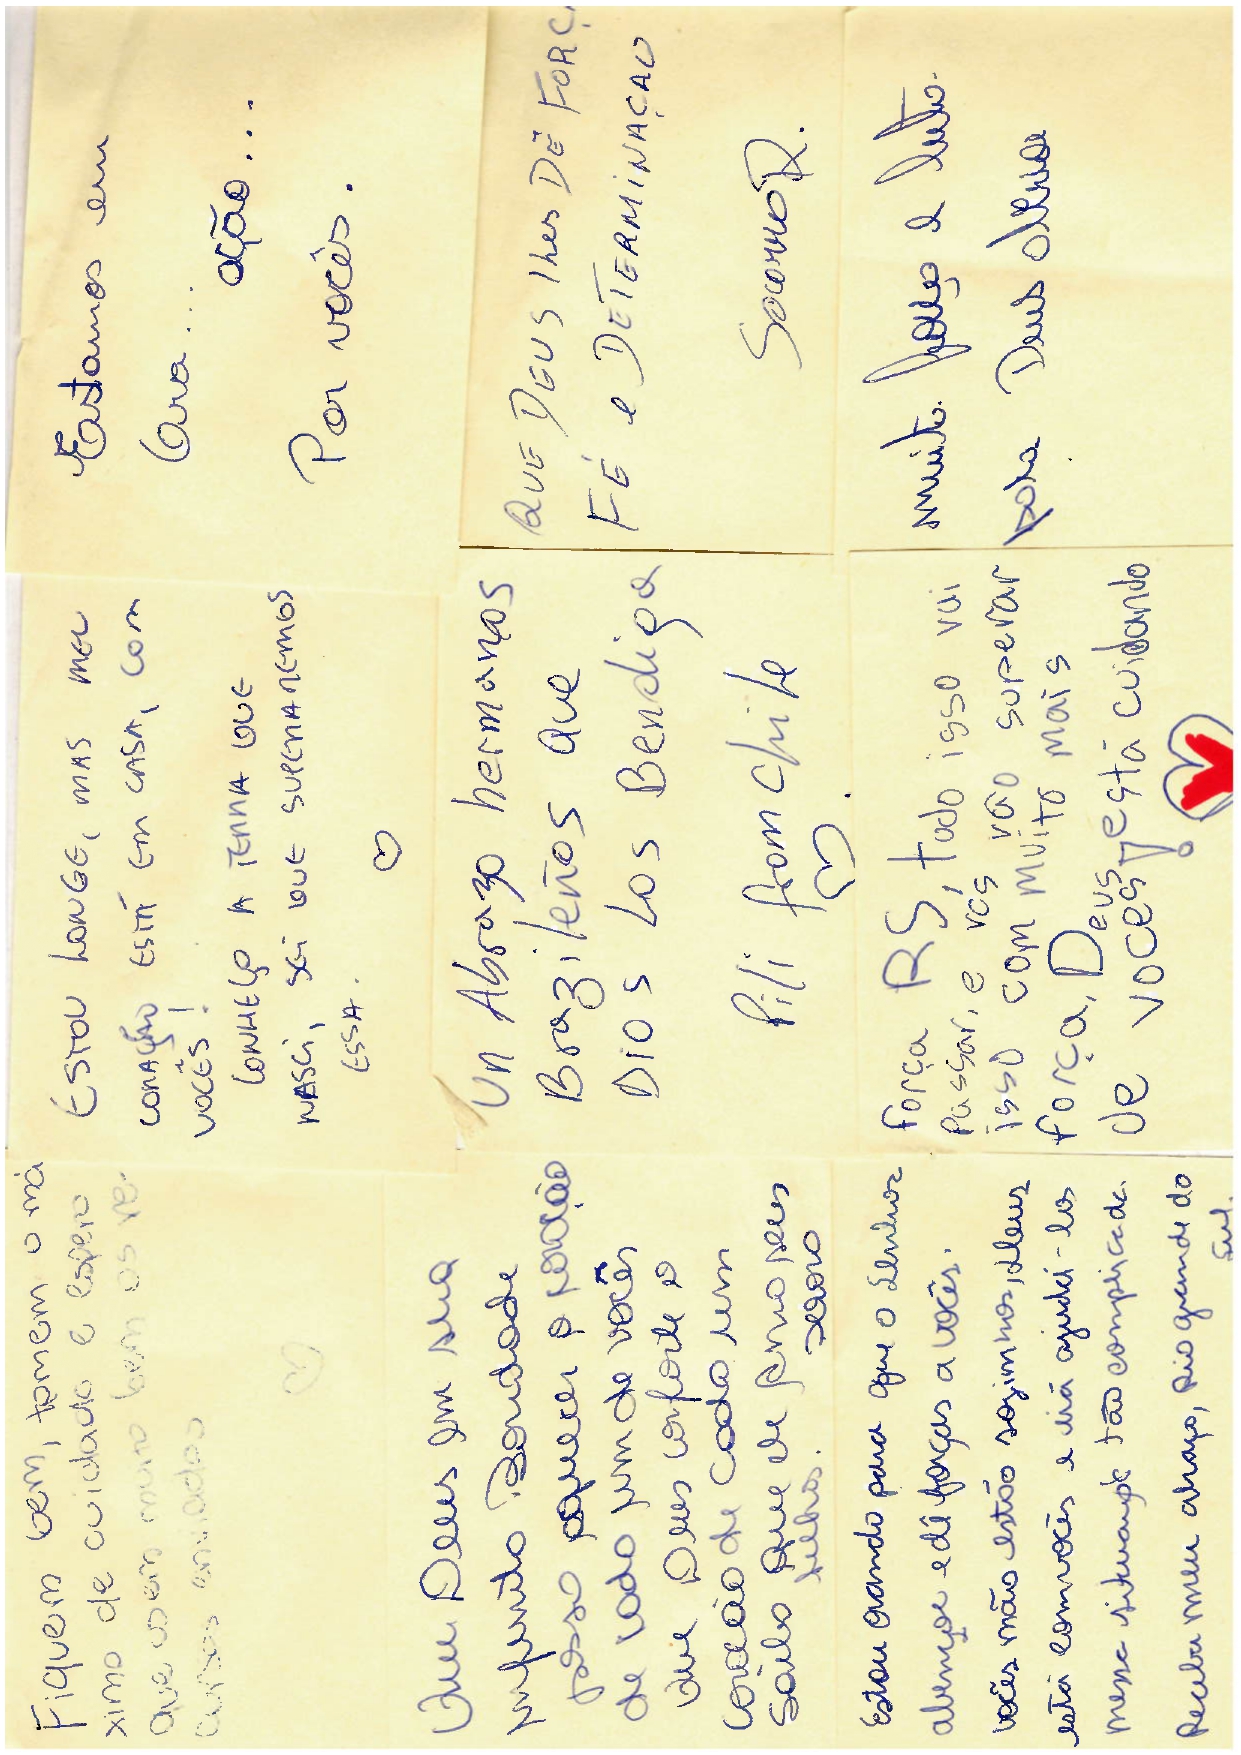 Fiquem bem, tomem o má
ximo de cuidado e espero
que usem muito bem os re-
cursos enviados
ESTOU LONGE, MAS MEU
CORAÇÃO ESTÁ EM CASA, COM
VOCÊS!
CONHEÇO A TERRA QUE
NASCI, SEI QUE SUPERAREMOS
ESSA.
Estamos em
Ora...
ação...
Por vocês.
Que Deus em sua
infinita Bondade
possa aquecer o coração
de cada um de vocês
Que Deus conforte o
coração de Cada um
Saiba que ele ama seus
filhos.
Un Abrazo hermanos
Brazileños que
Dios Los Bendiga
Pili from Chile
QUE DEUS lhes DÊ FORÇ
FÉ e DETERMINAÇAO
Socorro R.
Estou orando para que o Senhor
abençoe e dê forças a vocês.
Vocês não estão sozinhos, Deus
está com vocês e irá ajudá-los
nessa situação tão complicada.
Receba meu abraço, Rio grande do
Sul.
Força RS, tudo isso vai
Passar, e vcs vão superar
isso com muito mais
força, Deus está cuidando
de voces!
muit. força e luta.
para Deus